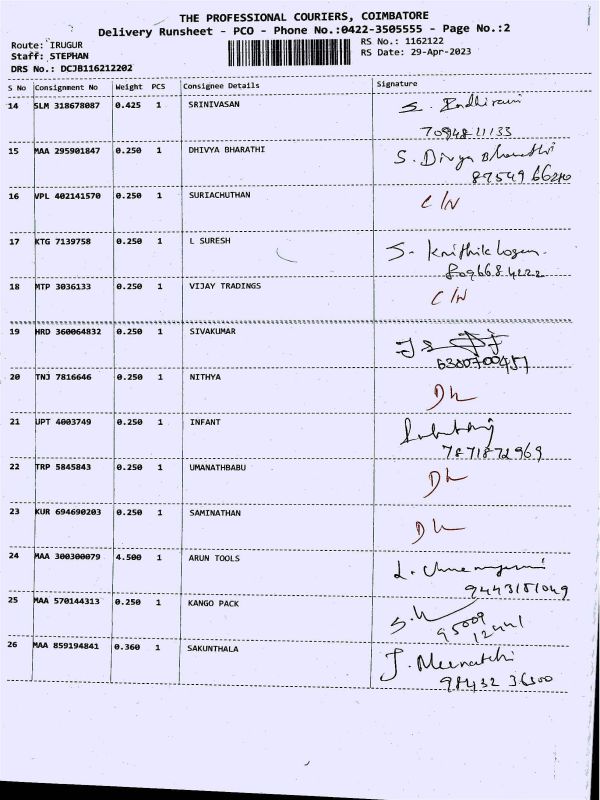 THE PROFESSIONAL COURIERS, COIMBATORE
Delivery Runsheet - PCO - Phone No.:0422-3505555 - Page No.:2
Route: IRUGUR RS No.: 1162122
Staff: STEPHAN RS Date: 29-Apr-2023
DRS No.: DCJB116212202
S No Consignment No Weight PCS Consignee Details Signature
14 SLM 318678087 0.425 1 SRINIVASAN S.
15 MAA 295901847 0.250 1 DHIVYA BHARATHI S. Divya Bharathi
16 VPL 402141570 0.250 1 SURIACHUTHAN C/N
17 KTG 7139758 0.250 1 L SURESH S.
18 MTP 3036133 0.250 1 VIJAY TRADINGS C/N
19 HRD 360064832 0.250 1 SIVAKUMAR
6380700457
20 TNJ 7816646 0.250 1 NITHYA DL
21 UPT 4003749 0.250 1 INFANT
7871872969
22 TRP 5845843 0.250 1 UMANATHBABU DL
23 KUR 694690203 0.250 1 SAMINATHAN DL
24 MAA 300300079 4.500 1 ARUN TOOLS
9443151049
25 MAA 570144313 0.250 1 KANGO PACK
95009
12441
26 MAA 859194841 0.360 1 SAKUNTHALA J. Meenatchi
98432 36300